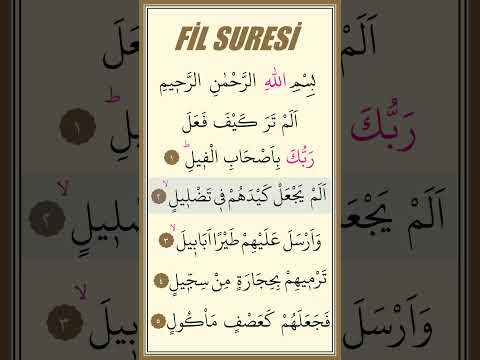 FİL SURESİ
بِسْمِ اللّٰهِ الرَّحْمٰنِ الرَّح۪يمِ
اَلَمْ تَرَ كَيْفَ فَعَلَ
رَبُّكَ بِاَصْحَابِ الْف۪يلِۜ ١
اَلَمْ يَجْعَلْ كَيْدَهُمْ ف۪ي تَضْل۪يلٍۙ ٢
وَاَرْسَلَ عَلَيْهِمْ طَيْرًا اَبَاب۪يلَۙ ٣
تَرْم۪يهِمْ بِحِجَارَةٍ مِنْ سِجّ۪يلٍ ٤
فَجَعَلَهُمْ كَعَصْفٍ مَأْكُولٍ ٥